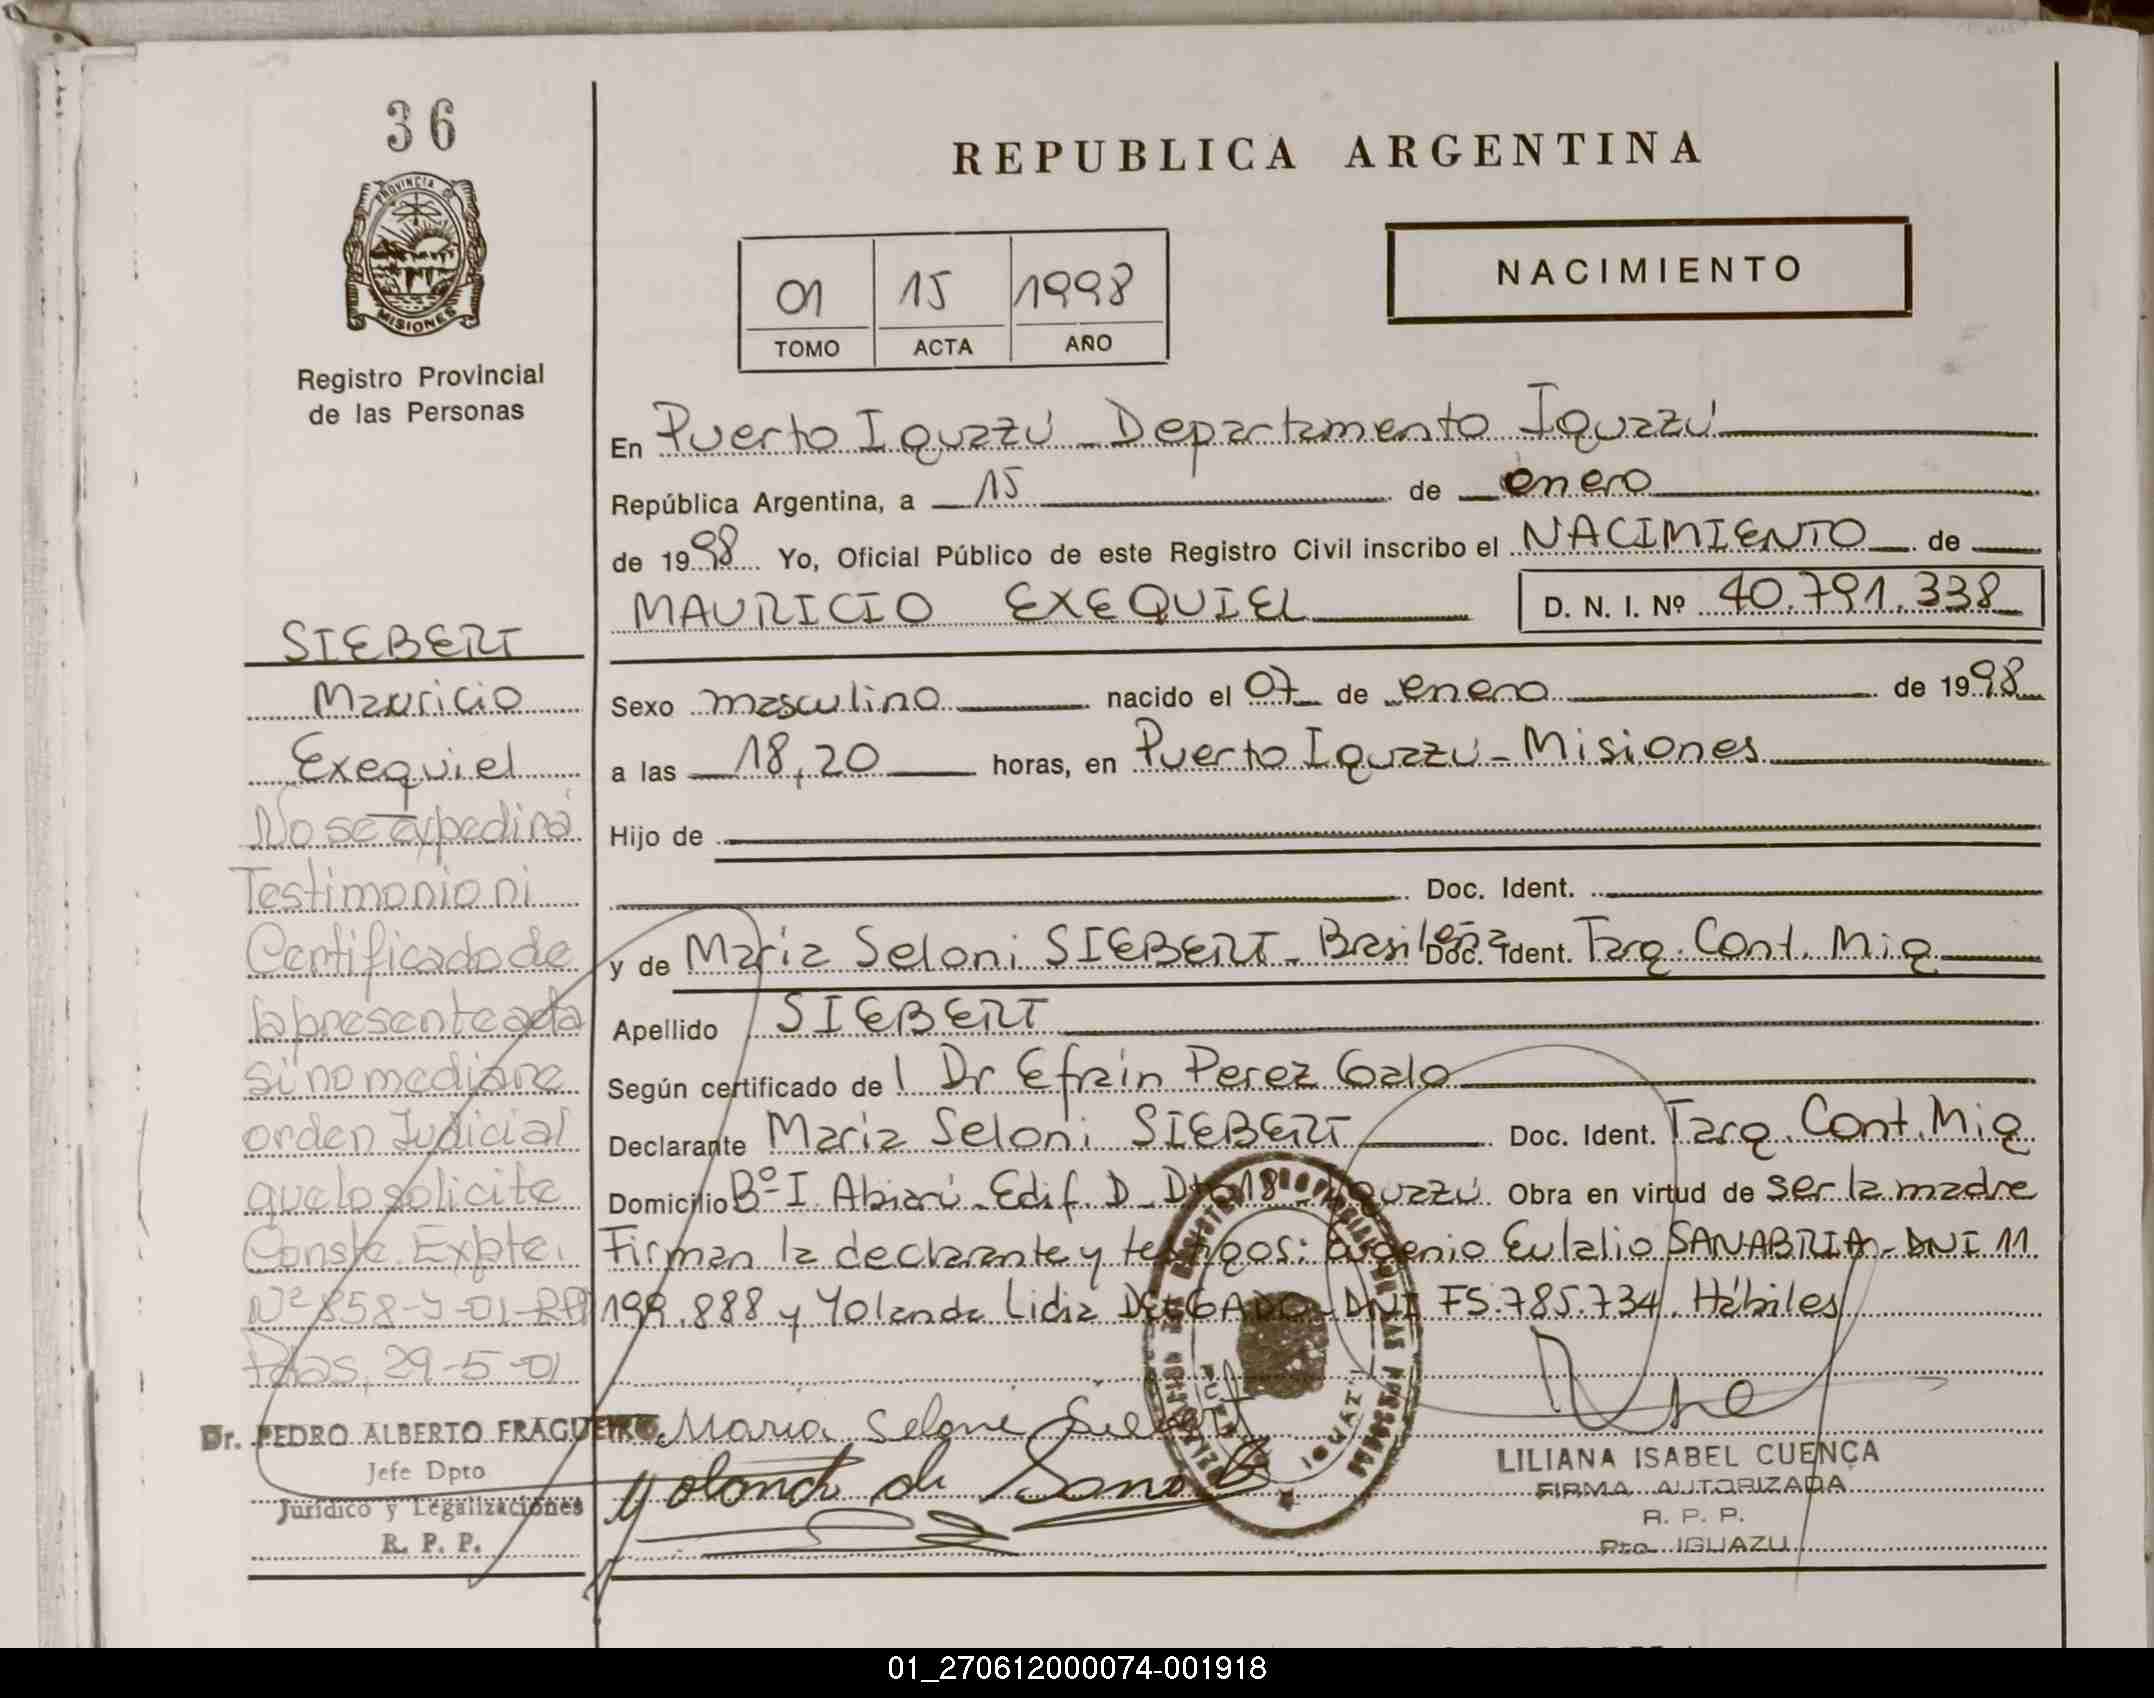 36
PROVINCIA DE
MISIONES
Registro Provincial
de las Personas
SIEBERT
Mauricio
Exequiel
No se expedirá
Testimonio ni
Certificado de
la presente acta
si no mediare
orden Judicial
que lo solicite
Conste. Expte.
Nº 858-Y-01-RPP
Pdas, 29-5-01
Dr. PEDRO ALBERTO FRAGUEIRO
Jefe Dpto
Jurídico y Legalizaciones
R. P. P.
REPUBLICA ARGENTINA
01 15 1998
TOMO ACTA AÑO
NACIMIENTO
En Puerto Iguazú - Departamento Iguazú
República Argentina, a 15 de enero
de 1998 Yo, Oficial Público de este Registro Civil inscribo el NACIMIENTO de
MAURICIO EXEQUIEL D. N. I. Nº 40.791.338
Sexo masculino nacido el 07 de enero de 1998
a las 18,20 horas, en Puerto Iguazú - Misiones
Hijo de
Doc. Ident.
y de Maria Seloni SIEBERT - Brasileña Doc. Ident. Targ. Cont. Mig
Apellido SIEBERT
Según certificado de l Dr Efraín Perez Galo
Declarante Maria Seloni SIEBERT Doc. Ident. Targ. Cont. Mig
Domicilio Bº I. Abiarú - Edif. D - Dto 18 - Iguazú Obra en virtud de ser la madre
Firman la declarante y testigos: Eugenio Eulalio SANABRIA - DNI 11
199.888 y Yolanda Lidia DELGADO - DNI F5.785.734. Hábiles
Maria Seloni Siebert
Yolanda de Sanab
LILIANA ISABEL CUENCA
FIRMA AUTORIZADA
R. P. P.
Pto. IGUAZU
01_270612000074-001918